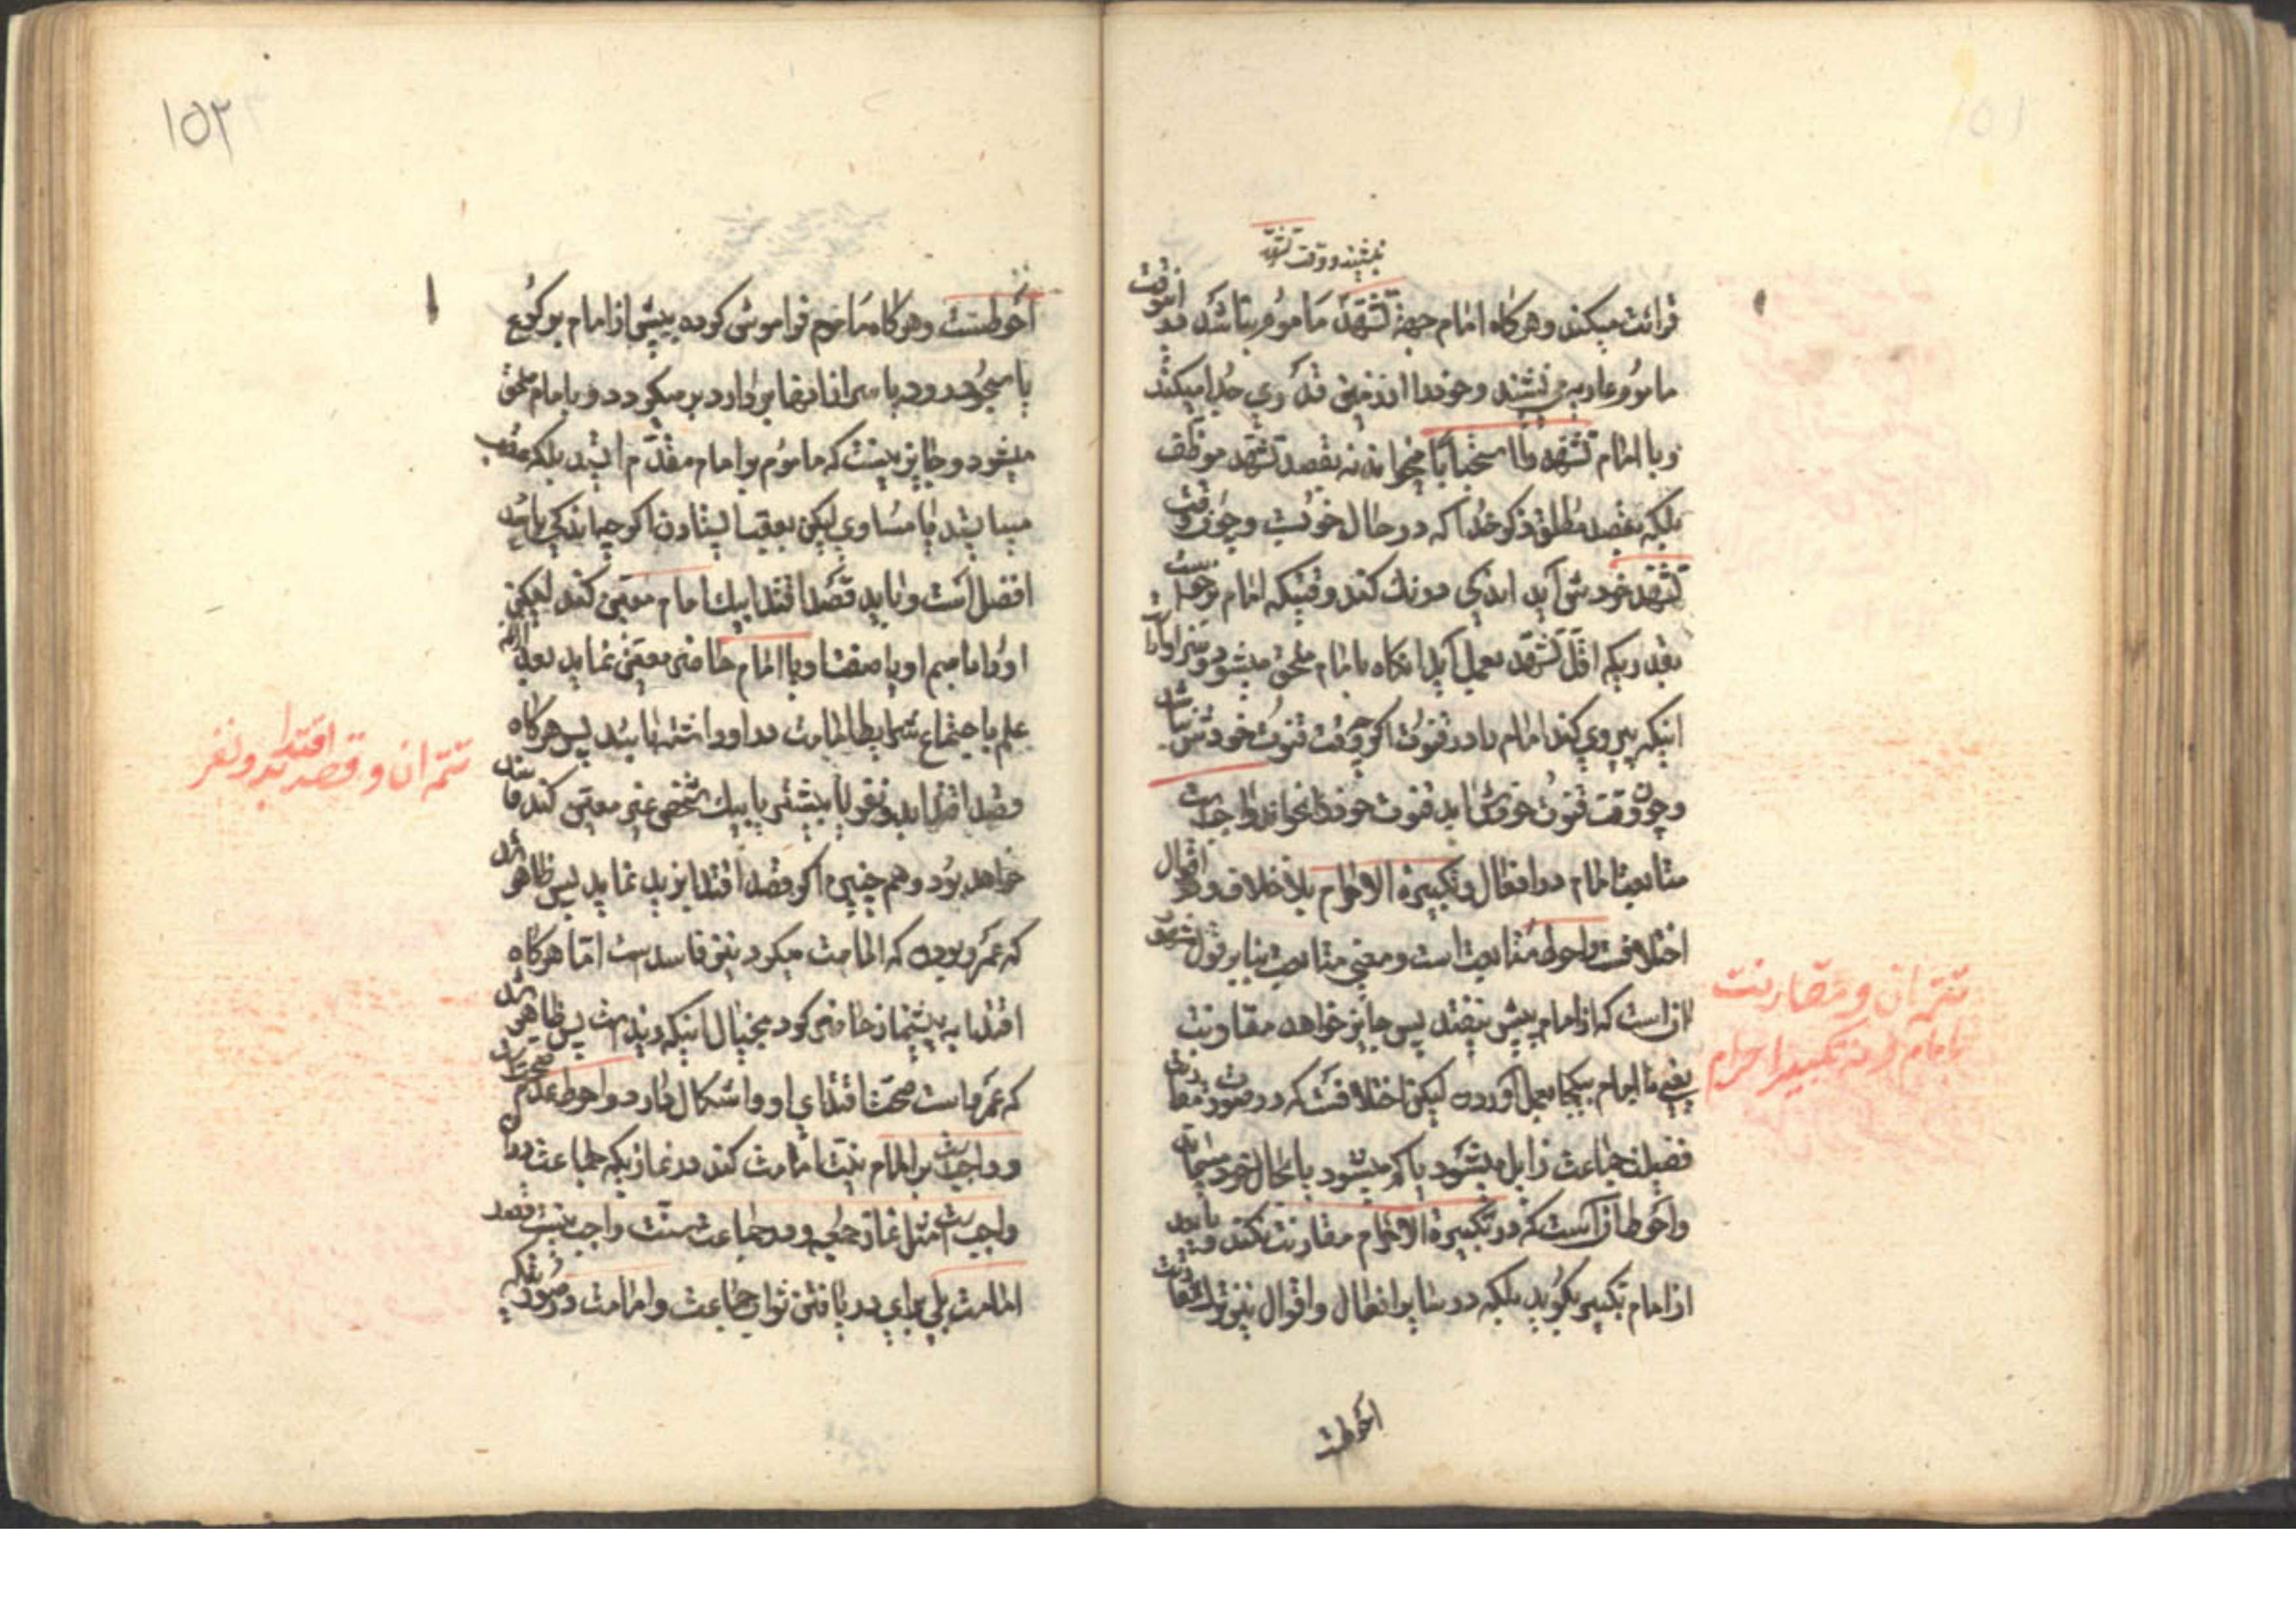 بنشیند و وقت تشهد
قرائت میکند و هرکاه امام جهة تشهد ماموم بناشد در انوقت
ماموم عاریه می نشیند و خود را از زمین قدری جدا میکند
و با امام تشهد را استحبابا میخواند نه بقصد تشهد موظف
بلکه بقصد مطلق ذکر خدا که در حال خوبست و چون وقت
تشهد خودش آید اندکی درنك کند وقتیکه امام برخواست
بقدریکه اقل تشهد بعمل آید انکاه بامام ملحق میشود و سزاوار است
اینکه پیروی کند امام را در قنوت اکرچه وقت قنوت خودش نباشد
و چون وقت قنوت خودش اید قنوت خود را بخواند واجبست
متابعت امام در افعال و تکبیرة الاحرام بلاخلاف و در اقوال
اختلافست و احوط متابعت است و معنی متابعت بنابر قول مشهور
ان است که از امام پیش نیفتد پس جایز خواهد مقارنت
یعنی با امام یکجا بعمل آورده لیکن اختلافست که در صورت مقارنت
فضیلت جماعت زایل میشود یا کم میشود یا بحال خود میماند
و احوط ان است که در تکبیرة الاحرام مقارنت نکند و باید بعد
از امام تکبیر بکوید بلکه در سایر افعال و اقوال نیز ترك مقارنت
احوطست
تتمه ان و مقارنت
با امام در نه تکبیر احرام
۱۵۲
احوطست و هرکاه ماموم فراموش کرده پیش از امام برکوع
یا سجود رود یا سر از انها بردارد برمیکردد و با امام ملحق
میشود و جایز نیست که ماموم بر امام مقدم ایستد بلکه عقب
میایستد یا مساوی لیکن بعقب ایستادن اکرچه اندکی باشد
افضل است و باید قصد اقتدا بیك امام معین کند لیکن
او را باسم او یا صفت او یا امام حاضر معین نماید بعد از انکه
علم باجتماع شرایط امامت در او داشته باشد پس هرکاه
قصد اقتدا بدو نفر یا بیشتر یا بیك شخص غیر معین کند فاسد
خواهد بود و هم چنین اکر قصد اقتدا بزید نماید پس ظاهر شد
که عمرو بوده که امامت میکرد نیز فاسد است اما هرکاه
اقتدا به پیشنماز حاضر کرد بخیال اینکه زید است پس ظاهر شد
که عمرو است صحت اقتدای او را اشکال دارد و احوط عدم صحت است
و واجب است بر امام نیت امامت کند در نمازیکه جماعت در ان
واجب است مثل نماز جمعه و در جماعت سنت واجب نیست قصد
امامت بلی برای دریافتن ثواب جماعت و امامت در صورتیکه
تتمه ان و قصد اقتدا بدو نفر